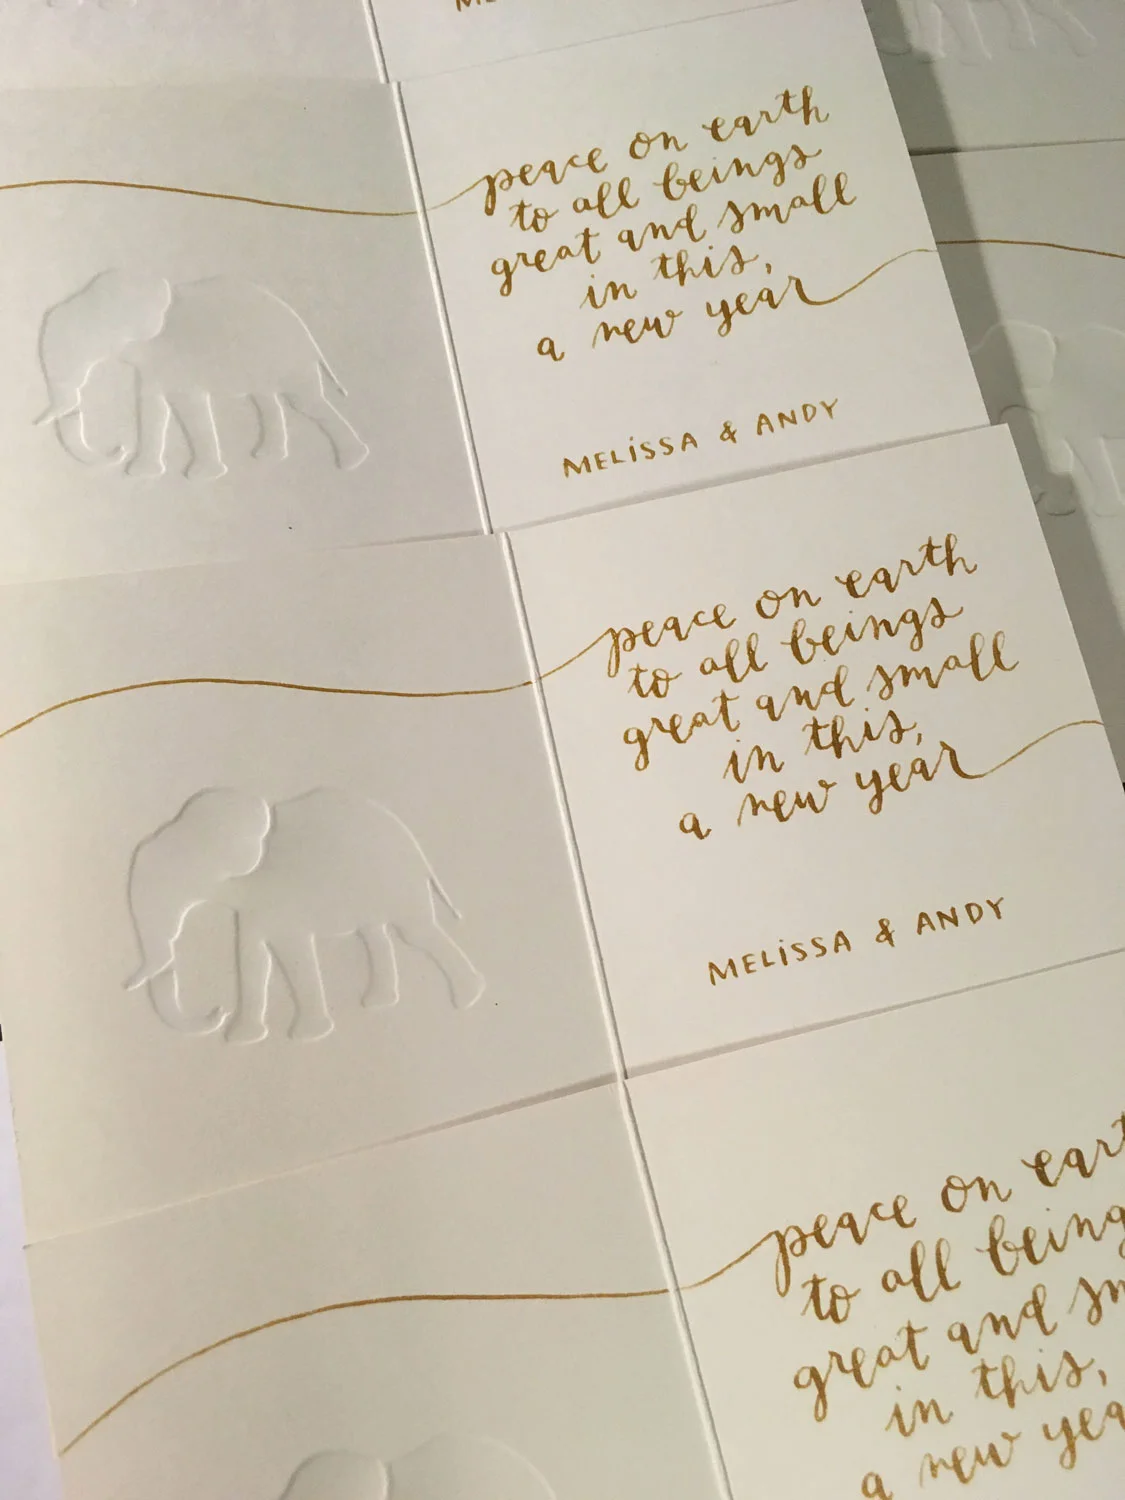 peace on earth
to all beings
great and small
in this,
a new year
MELISSA & ANDY
peace on earth
to all beings
great and small
in this,
a new year
MELISSA & ANDY
peace on
to all
great and
in this,
a new